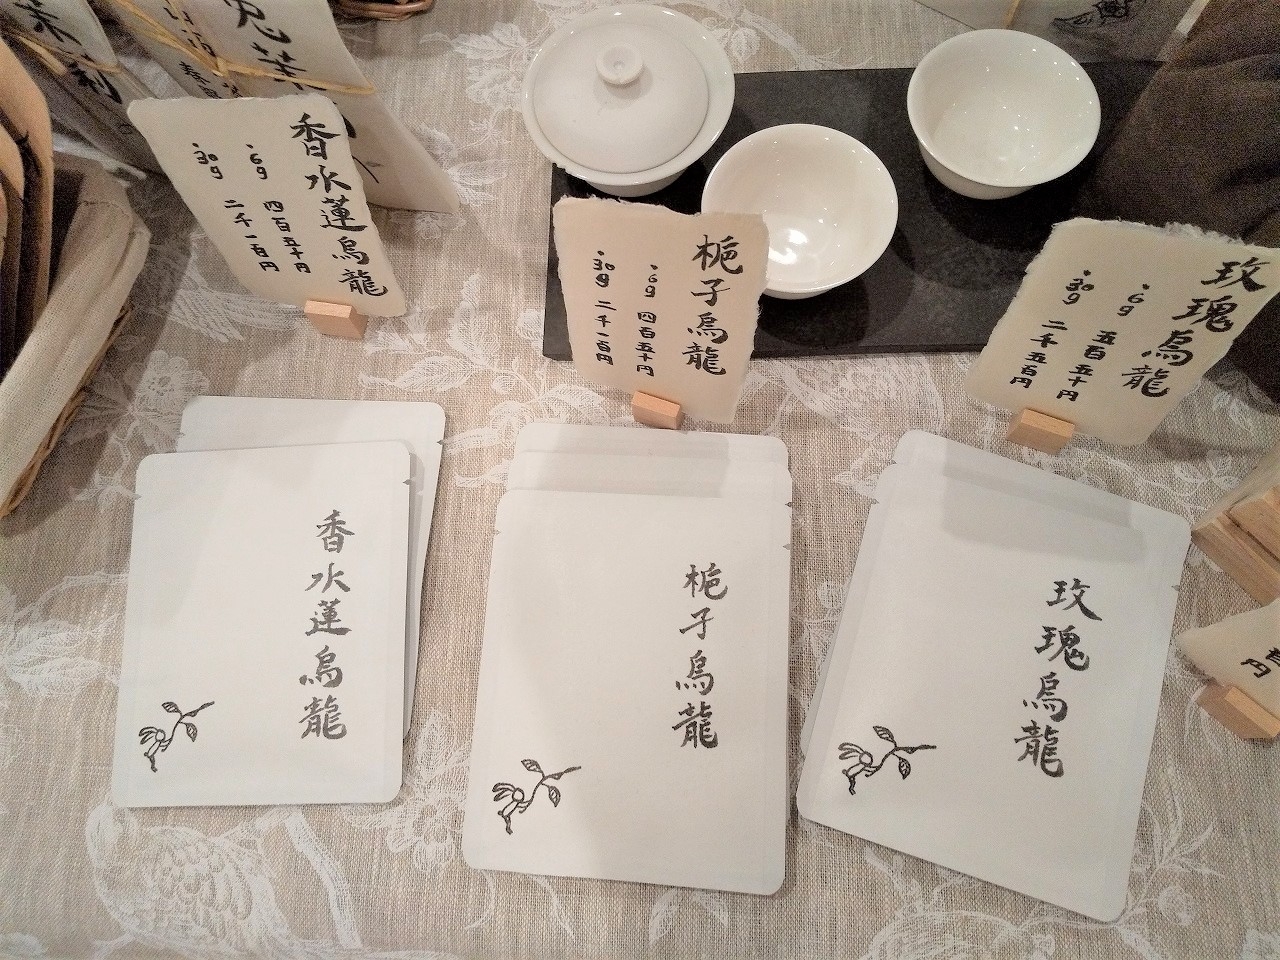 香水蓮烏龍
・6g 四百五十円
・30g 二千一百円
梔子烏龍
・6g 四百五十円
・30g 二千一百円
玫瑰烏龍
・6g 五百五十円
・30g 二千五百円
香水蓮烏龍
梔子烏龍
玫瑰烏龍
円